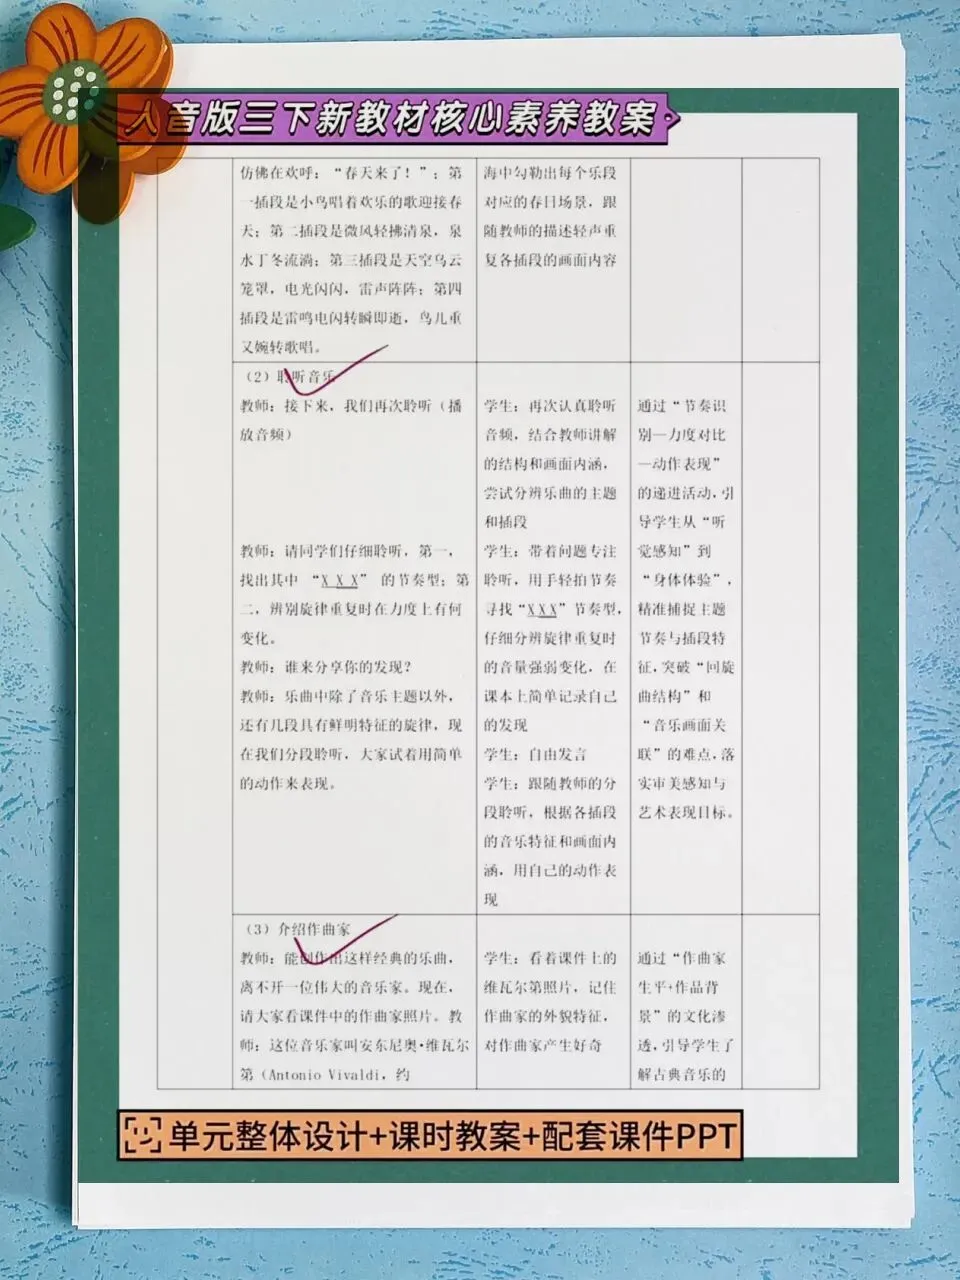 人音版三下新教材核心素养教案
仿佛在欢呼：“春天来了！”；第
一插段是小鸟唱着欢乐的歌迎接春
天；第二插段是微风轻拂清泉，泉
水丁冬流淌；第三插段是天空乌云
笼罩，电光闪闪，雷声阵阵；第四
插段是雷鸣电闪转瞬即逝，鸟儿重
又婉转歌唱。
海中勾勒出每个乐段
对应的春日场景，跟
随教师的描述轻声重
复各插段的画面内容
（2）聆听音乐
教师：接下来，我们再次聆听（播
放音频）
教师：请同学们仔细聆听，第一，
找出其中 “X X X” 的节奏型；第
二，辨别旋律重复时在力度上有何
变化。
教师：谁来分享你的发现？
教师：乐曲中除了音乐主题以外，
还有几段具有鲜明特征的旋律，现
在我们分段聆听，大家试着用简单
的动作来表现。
学生：再次认真聆听
音频，结合教师讲解
的结构和画面内涵，
尝试分辨乐曲的主题
和插段
学生：带着问题专注
聆听，用手轻拍节奏
寻找“X X X”节奏型，
仔细分辨旋律重复时
的音量强弱变化，在
课本上简单记录自己
的发现
学生：自由发言
学生：跟随教师的分
段聆听，根据各插段
的音乐特征和画面内
涵，用自己的动作表
现
通过“节奏识
别—力度对比
—动作表现”
的递进活动，引
导学生从“听
觉感知”到
“身体体验”，
精准捕捉主题
节奏与插段特
征，突破“回旋
曲结构”和
“音乐画面关
联”的难点，落
实审美感知与
艺术表现目标。
（3）介绍作曲家
教师：能创作出这样经典的乐曲，
离不开一位伟大的音乐家。现在，
请大家看课件中的作曲家照片。教
师：这位音乐家叫安东尼奥·维瓦尔
第（Antonio Vivaldi，约
学生：看着课件上的
维瓦尔第照片，记住
作曲家的外貌特征，
对作曲家产生好奇
通过“作曲家
生平+作品背
景”的文化渗
透，引导学生了
解古典音乐的
单元整体设计+课时教案+配套课件PPT